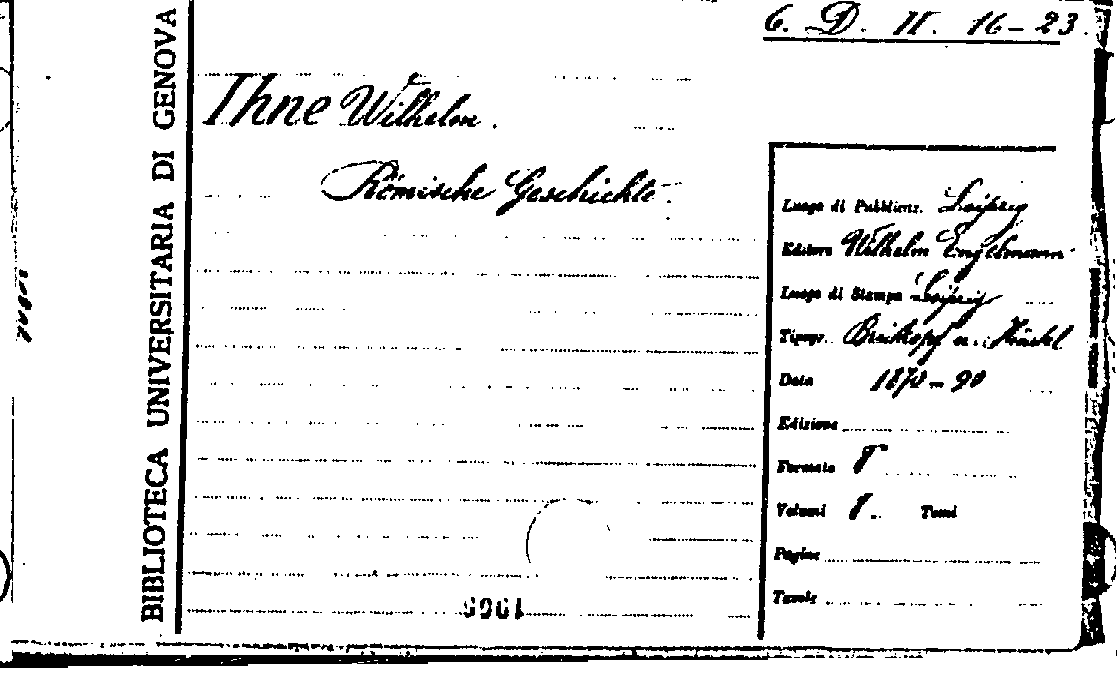 6. D. II. 16-23.
BIBLIOTECA UNIVERSITARIA DI GENOVA
Ihne Wilhelm.
Römische Geschichte.
Luogo di Pubblicaz. Leipzig
Editore Wilhelm Engelmann
Luogo di Stampa Leipzig
Tipogr. Breitkopf u. Härtel
Data -90
Edizione
Formato 8
Volumi 8. Tomi
Pagine
Tavole